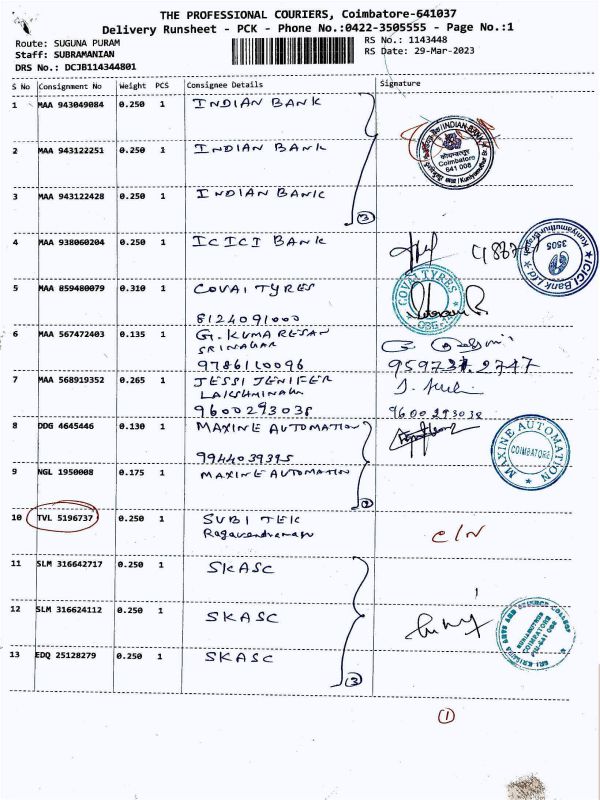 THE PROFESSIONAL COURIERS, Coimbatore-641037
Delivery Runsheet - PCK - Phone No.:0422-3505555 - Page No.:1
Route: SUGUNA PURAM
RS No.: 1143448
Staff: SUBRAMANIAN
RS Date: 29-Mar-2023
DRS No.: DCJB114344801
S No Consignment No Weight PCS Consignee Details Signature
1 MAA 943049084 0.250 1 INDIAN BANK
INDIAN BANK
Coimbatore
641 008
2 MAA 943122251 0.250 1 INDIAN BANK
3 MAA 943122428 0.250 1 INDIAN BANK
3
4 MAA 938060204 0.250 1 ICICI BANK
ICICI Bank Ltd
Kuniyamuthur Branch
3505
5 MAA 859480079 0.310 1 COVAI TYRES
COVAI TYRES
8124091000
6 MAA 567472403 0.135 1 G. KUMARESAN
SRINAGAR
9786110096 959731.2747
7 MAA 568919352 0.265 1 JESSI JENIFER
9600293038 9600293038
8 DDG 4645446 0.130 1 MAXINE AUTOMATION
MAXINE AUTOMATION
COIMBATORE
9944039395
9 NGL 1950008 0.175 1 MAXINE AUTOMATION
2
10 TVL 5196737 0.250 1 SUBI TEK
C/N
11 SLM 316642717 0.250 1 SKASC
12 SLM 316624112 0.250 1 SKASC
SRI KRISHNA ARTS AND SCIENCE COLLEGE
KUNIAMUTHUR
COIMBATORE
641 008
13 EDQ 25128279 0.250 1 SKASC
3
1